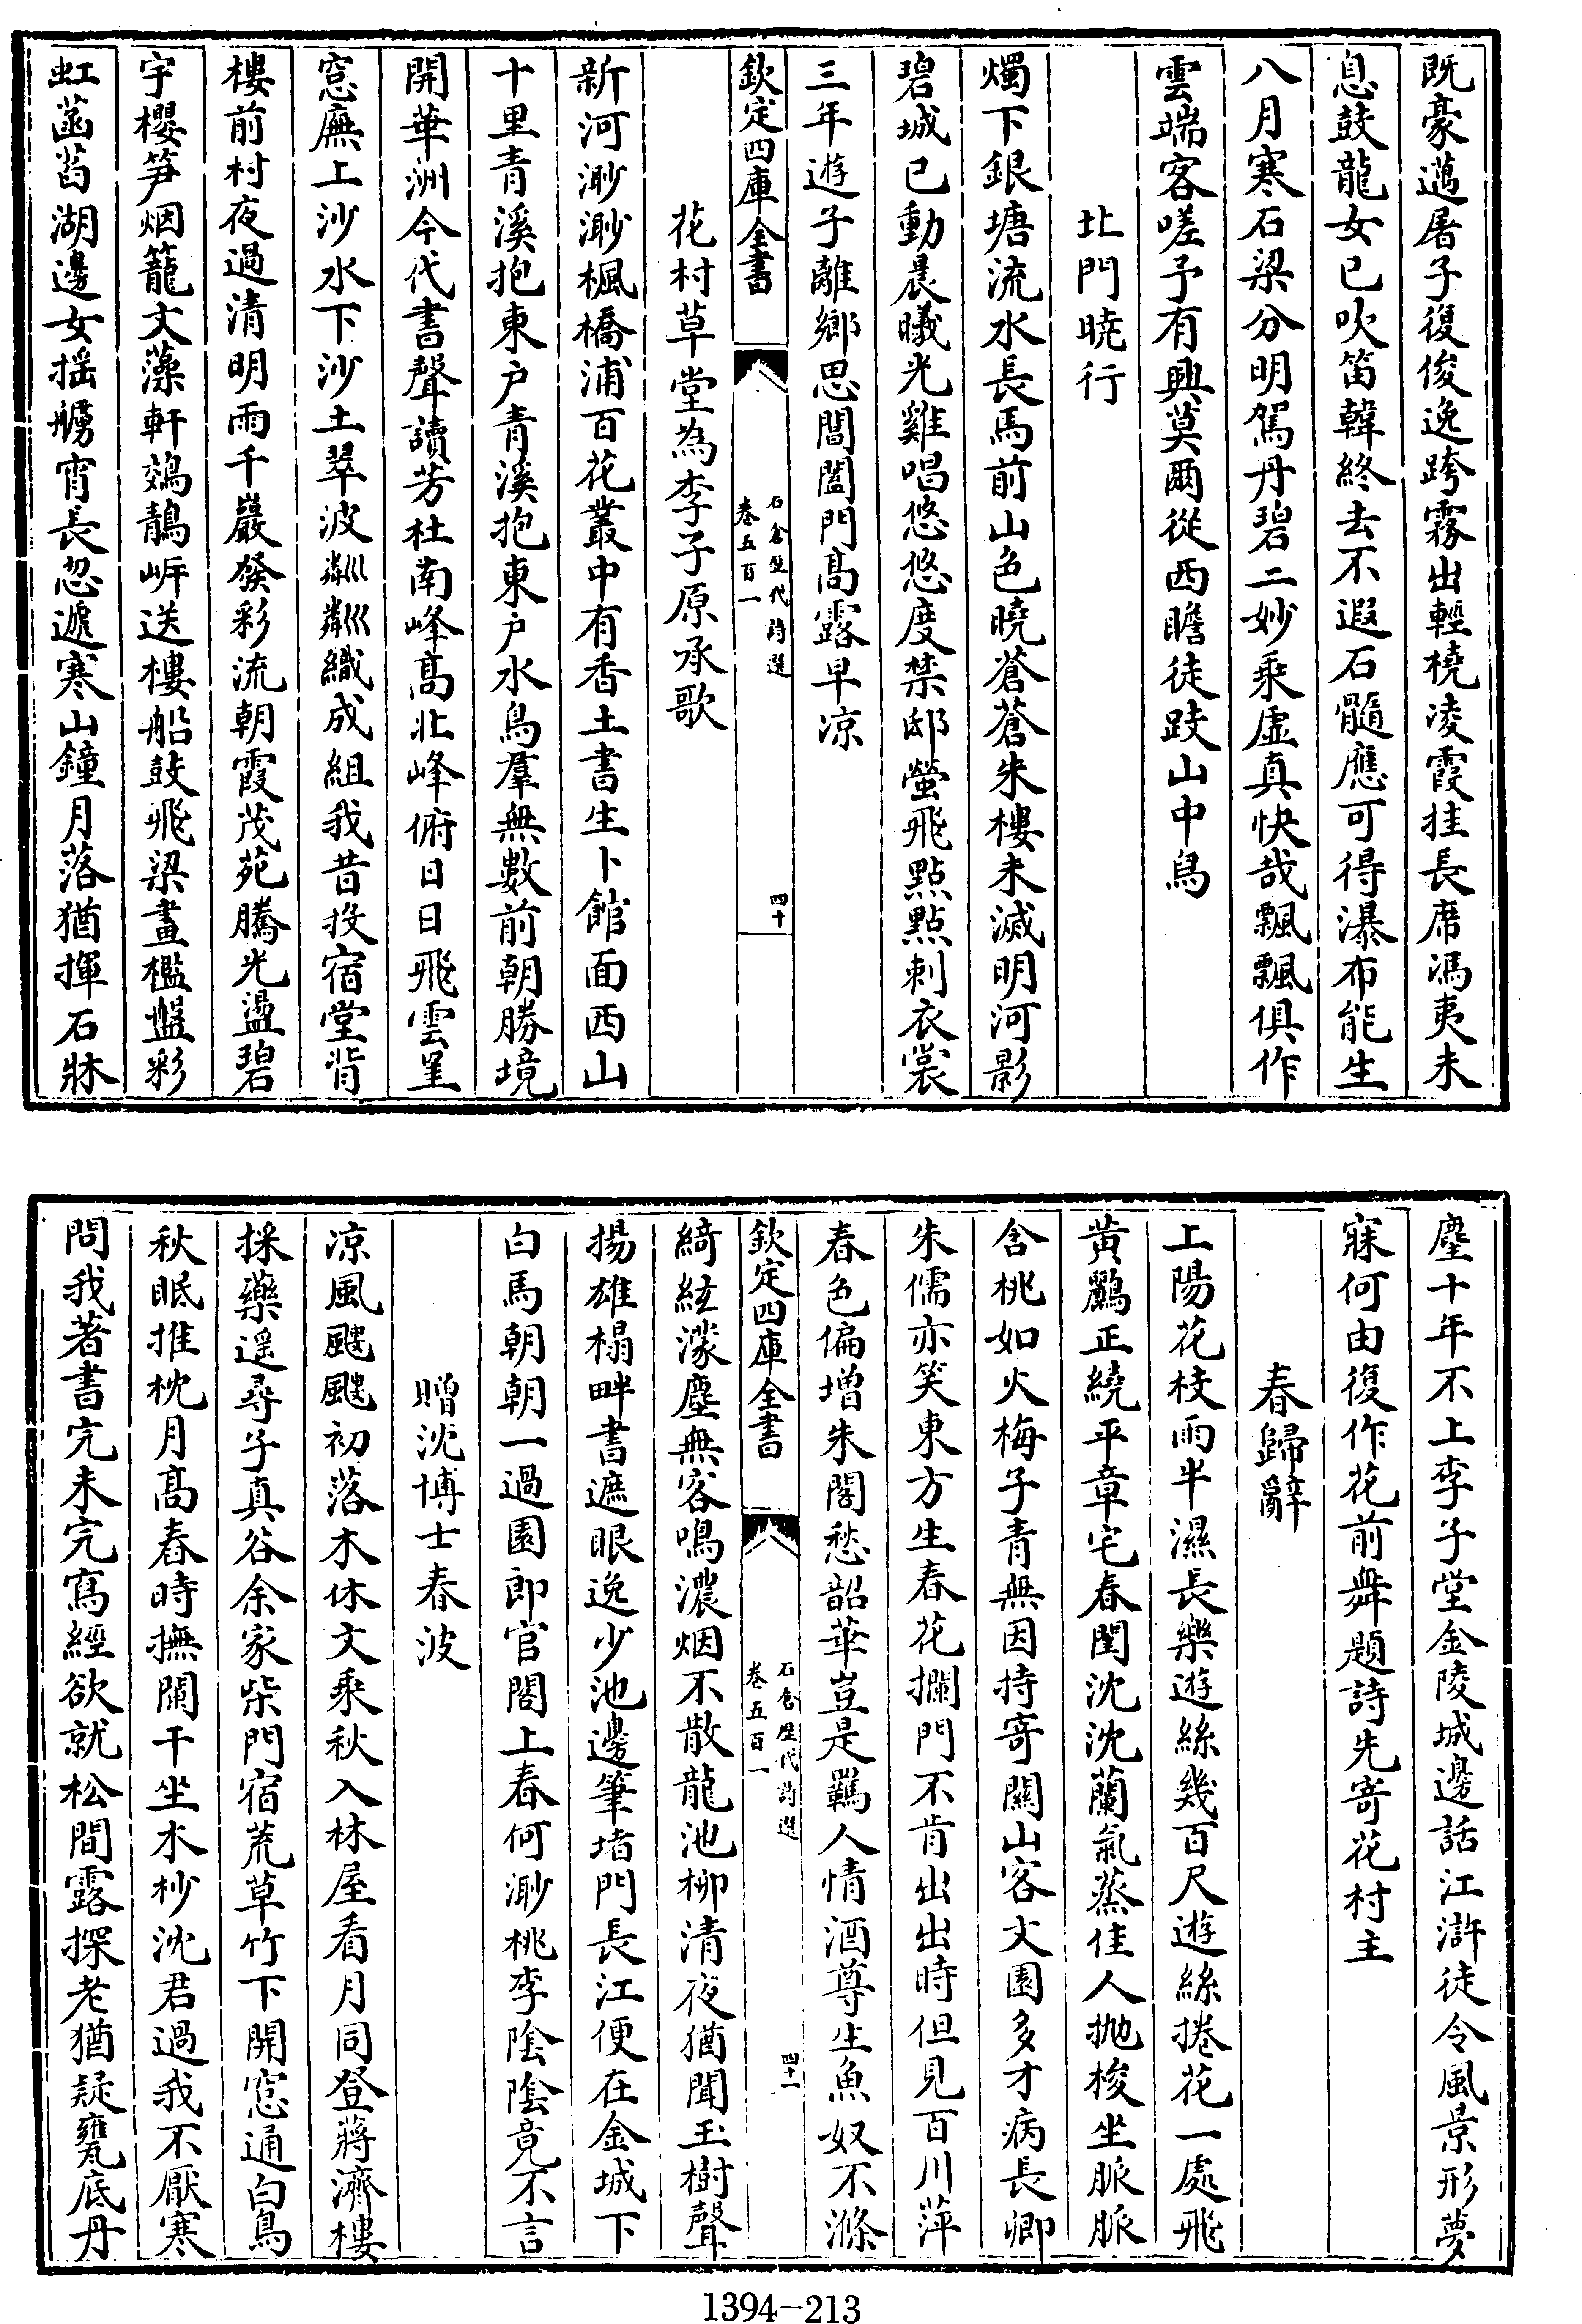 既豪邁屠子復俊逸跨霧出輕橈凌霞挂長席馮夷未
息鼓龍女已吹笛韓終去不遐石髓應可得瀑布能生
八月寒石梁分明駕丹碧二妙乘虛真快哉飄飄俱作
雲端客嗟予有興莫爾從西瞻徒跂山中舄
北門曉行
燭下銀塘流水長馬前山色曉蒼蒼朱樓未滅明河影
碧城已動晨曦光雞唱悠悠度禁邸螢飛點點刺衣裳
三年遊子離鄉思閶闔門高露早凉
欽定四庫全書
石倉歷代詩選
卷五百一
四十
花村草堂為李子原承歌
新河渺渺楓橋浦百花叢中有香土書生卜館面西山
十里青溪抱東户青溪抱東户水鳥羣無數前朝勝境
開華洲今代書聲讀芳杜南峰高北峰俯日日飛雲罣
窓廡上沙水下沙土翠波粼粼織成組我昔投宿堂背
樓前村夜過清明雨千巖發彩流朝霞茂苑騰光盪碧
宇櫻笋烟籠文藻軒鵁鶄岍送樓船鼓飛梁畫檻盤彩
虹菡萏湖邊女揺艣宵長忽遞寒山鐘月落猶揮石牀
塵十年不上李子堂金陵城邊話江滸徒令風景形夢
寐何由復作花前舞題詩先寄花村主
春歸辭
上陽花枝雨半濕長樂遊絲幾百尺遊絲捲花一處飛
黄鸝正繞平章宅春閨沈沈蘭氣蒸佳人抛梭坐脈脈
含桃如火梅子青無因持寄關山客文園多才病長卿
朱儒亦笑東方生春花攔門不肯出出時但見百川萍
春色偏増朱閣愁韶華豈是羈人情酒尊生魚奴不滌
欽定四庫全書
石倉歷代詩選
卷五百一
四十一
綺絃濛塵無客鳴濃烟不散龍池柳清夜猶聞玉樹聲
揚雄榻畔書遮眼逸少池邊筆堵門長江便在金城下
白馬朝朝一過園郎官閣上春何渺桃李隂隂竟不言
贈沈博士春波
凉風颼颼初落木休文乘秋入林屋看月同登蔣濟樓
採藥遥尋子真谷余家柴門宿荒草竹下開窓通白鳥
秋眠推枕月高舂時撫闌干坐木杪沈君過我不厭寒
問我著書完未完寫經欲就松間露探老猶疑甕底丹
1394-213